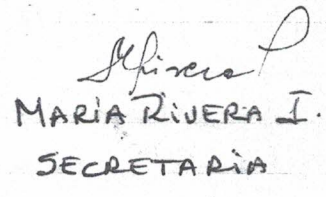 MARIA RIVERA I.
SECRETARIA